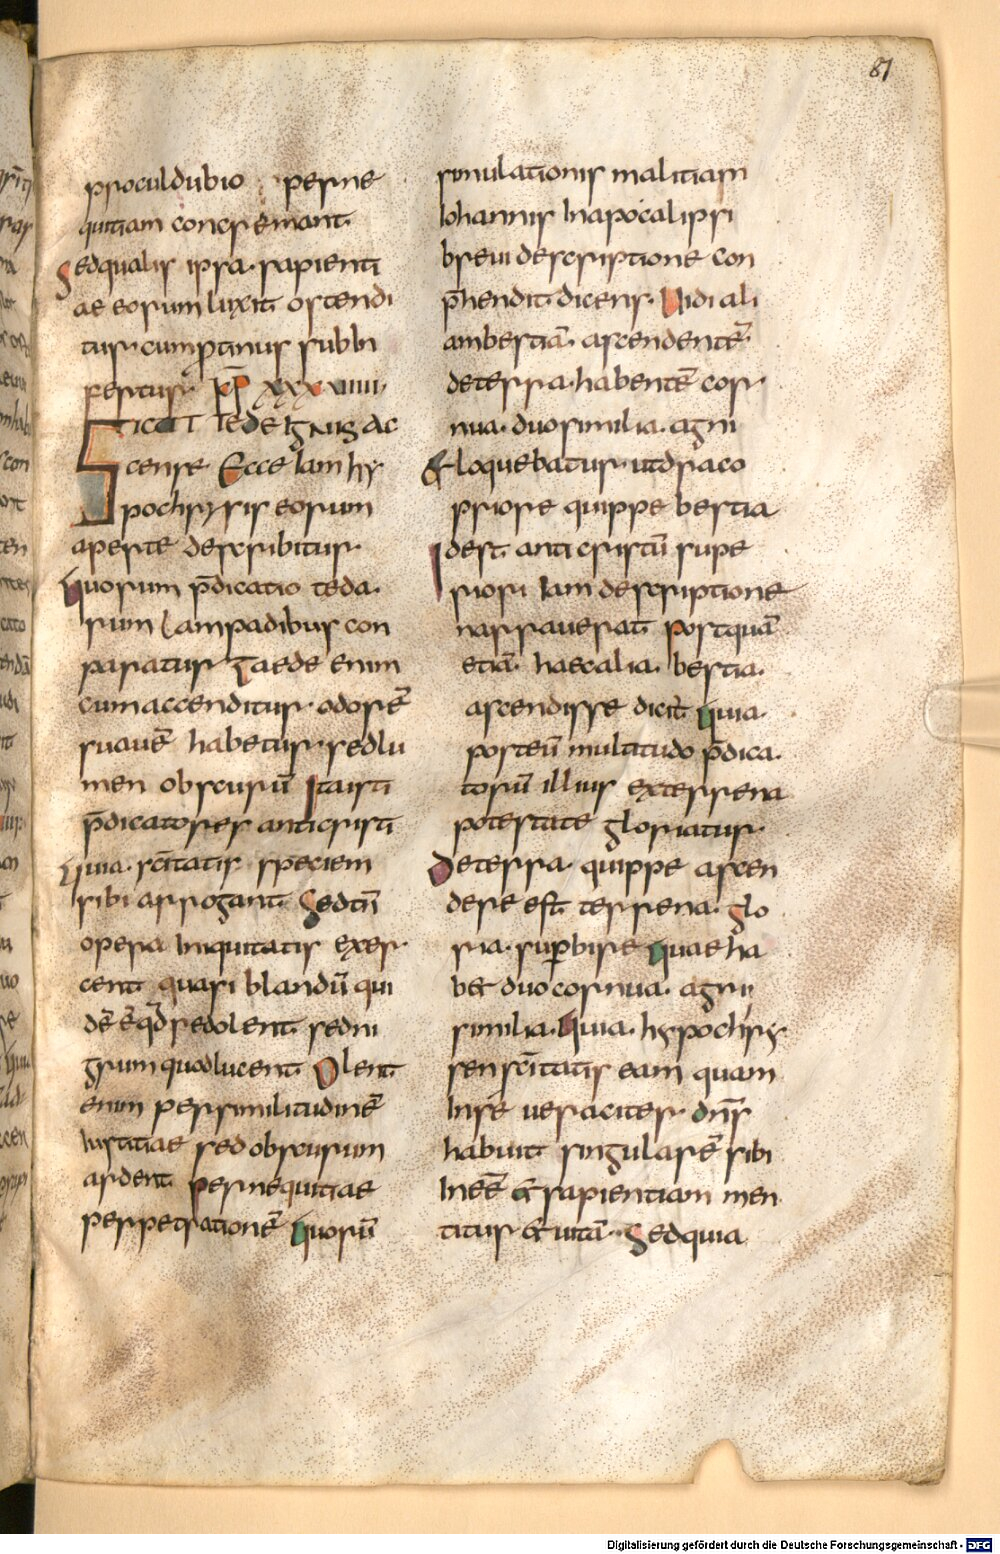 81
proculdubio perne
quitiam concremant.
Sedqualis ipsa sapienti
ae eorum luxit ostendi
tur cum protinus subin
fertur kp xxxviiii
SICUT TEDE IGNIS AC
cense Ecce iam hy
pochrysis eorum
aperte describitur.
Quorum p̄dicatio teda
rum lampadibus con
paratur Taede enim
cum accenditur odorē
suauē habetur sedlu
men obscurū Itaisti
p̄dicatores anticristi
Quia sc̄itatis speciem
sibi arrogant Sedtn̄
opera Iniquitatis exer
cent quasi blandū qui
dē ē qd̄ redolent sedni
grum quodlucent Olent
enim persimilitudinē
Iustitiae sed obscurum
ardent pernequitiae
perpetrationē Quorū
simulationis malitiam
Iohannis Inapocalipsi
breui descriptione con
p̄hendit dicens. Uidi ali
am bestiā ascendentē
deterra habentē cor
nua duo similia agni
Et loquebatur utdraco
priore quippe bestia
Idest anticristū supe
riori Iam descriptione
narrauerat postquā
etiā haecalia bestia
ascendisse dicit̄ Quia
posteū multitudo p̄dica
torū illius exterrena
potestate gloriatur
Deterra quippe ascen
dere est terrena glo
ria sup̄bire Quae ha
bet duo cornua agni
similia Quia hypochry
sen sc̄itatis eam quam
Inse ueraciter dn̄s
habuit singularē sibi
Ineē et sapientiam men
titur et uitā Sedquia
Digitalisierung gefördert durch die Deutsche Forschungsgemeinschaft - DFG